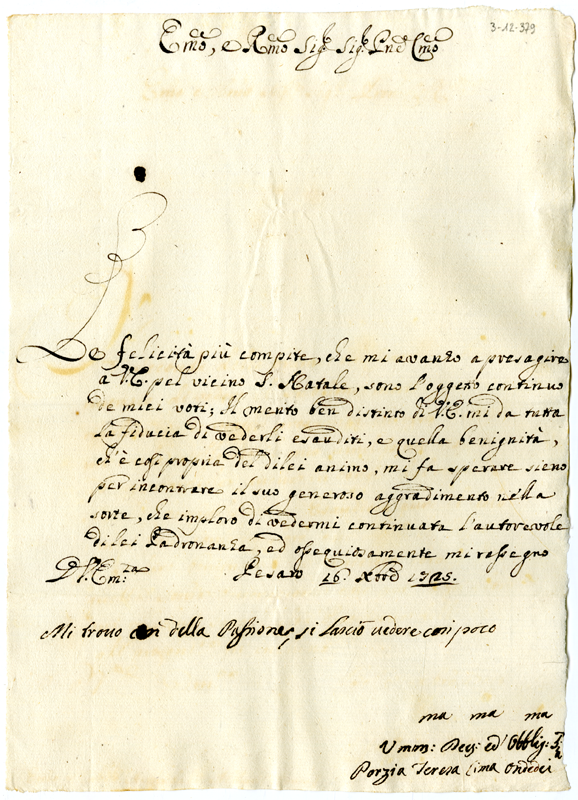 3-12-379
Emo, e Rmo Sigr Sigr Pne Cmo
Le felicità più compite, che mi avanzo a presagire
à V.E. pel vicino S. Natale, sono l'oggeto continuo
de miei voti; Il merito ben distinto di V.E. mi da tutta
la fiducia di vederli esauditi, e quella benignità,
ch'è così propria del dilei animo, mi fa sperare sieno
per incontrare il suo generoso aggradimento nella
sorte, che imploro di vedermi continuata l'autorevole
dilei Padronanza, ed ossequiosamente mi rassegno
D V. Em.za Pesaro 16 Xbre 1725.
Mi trovo della Passione, si lasciò vedere con poco
ma ma ma
Umma: Devma: ed Obblig: 
Porzia Teresa Cima Ondedei